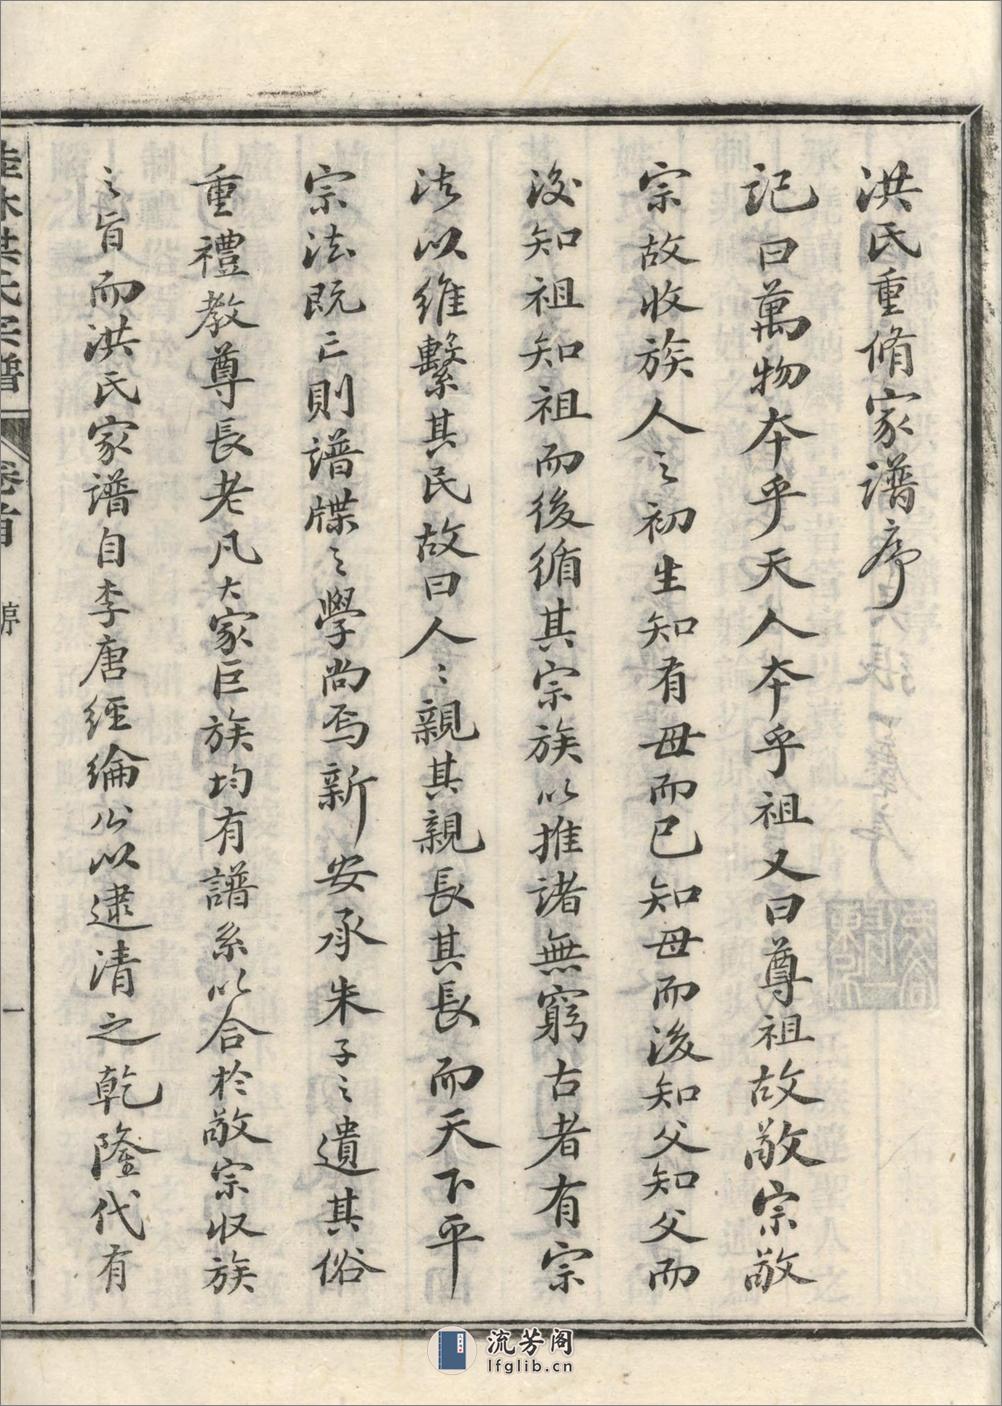 洪氏重脩家譜序
記曰萬物夲乎天人夲乎祖又曰尊祖故敬宗敬
宗故收族人之初生知有母而已知母而後知父知父而
後知祖知祖而後循其宗族以推諸無窮古者有宗
法以維繫其民故曰人〻親其親長其長而天下平
宗法既亡則譜牒之學尚焉新安承朱子之遺其俗
重禮教尊長老凡大家巨族均有譜系以合於敬宗收族
之旨而洪氏家譜自李唐經綸公以逮清之乾隆代有
桂林洪氏宗譜 卷首 序 一
流芳阁
lfglib.cn